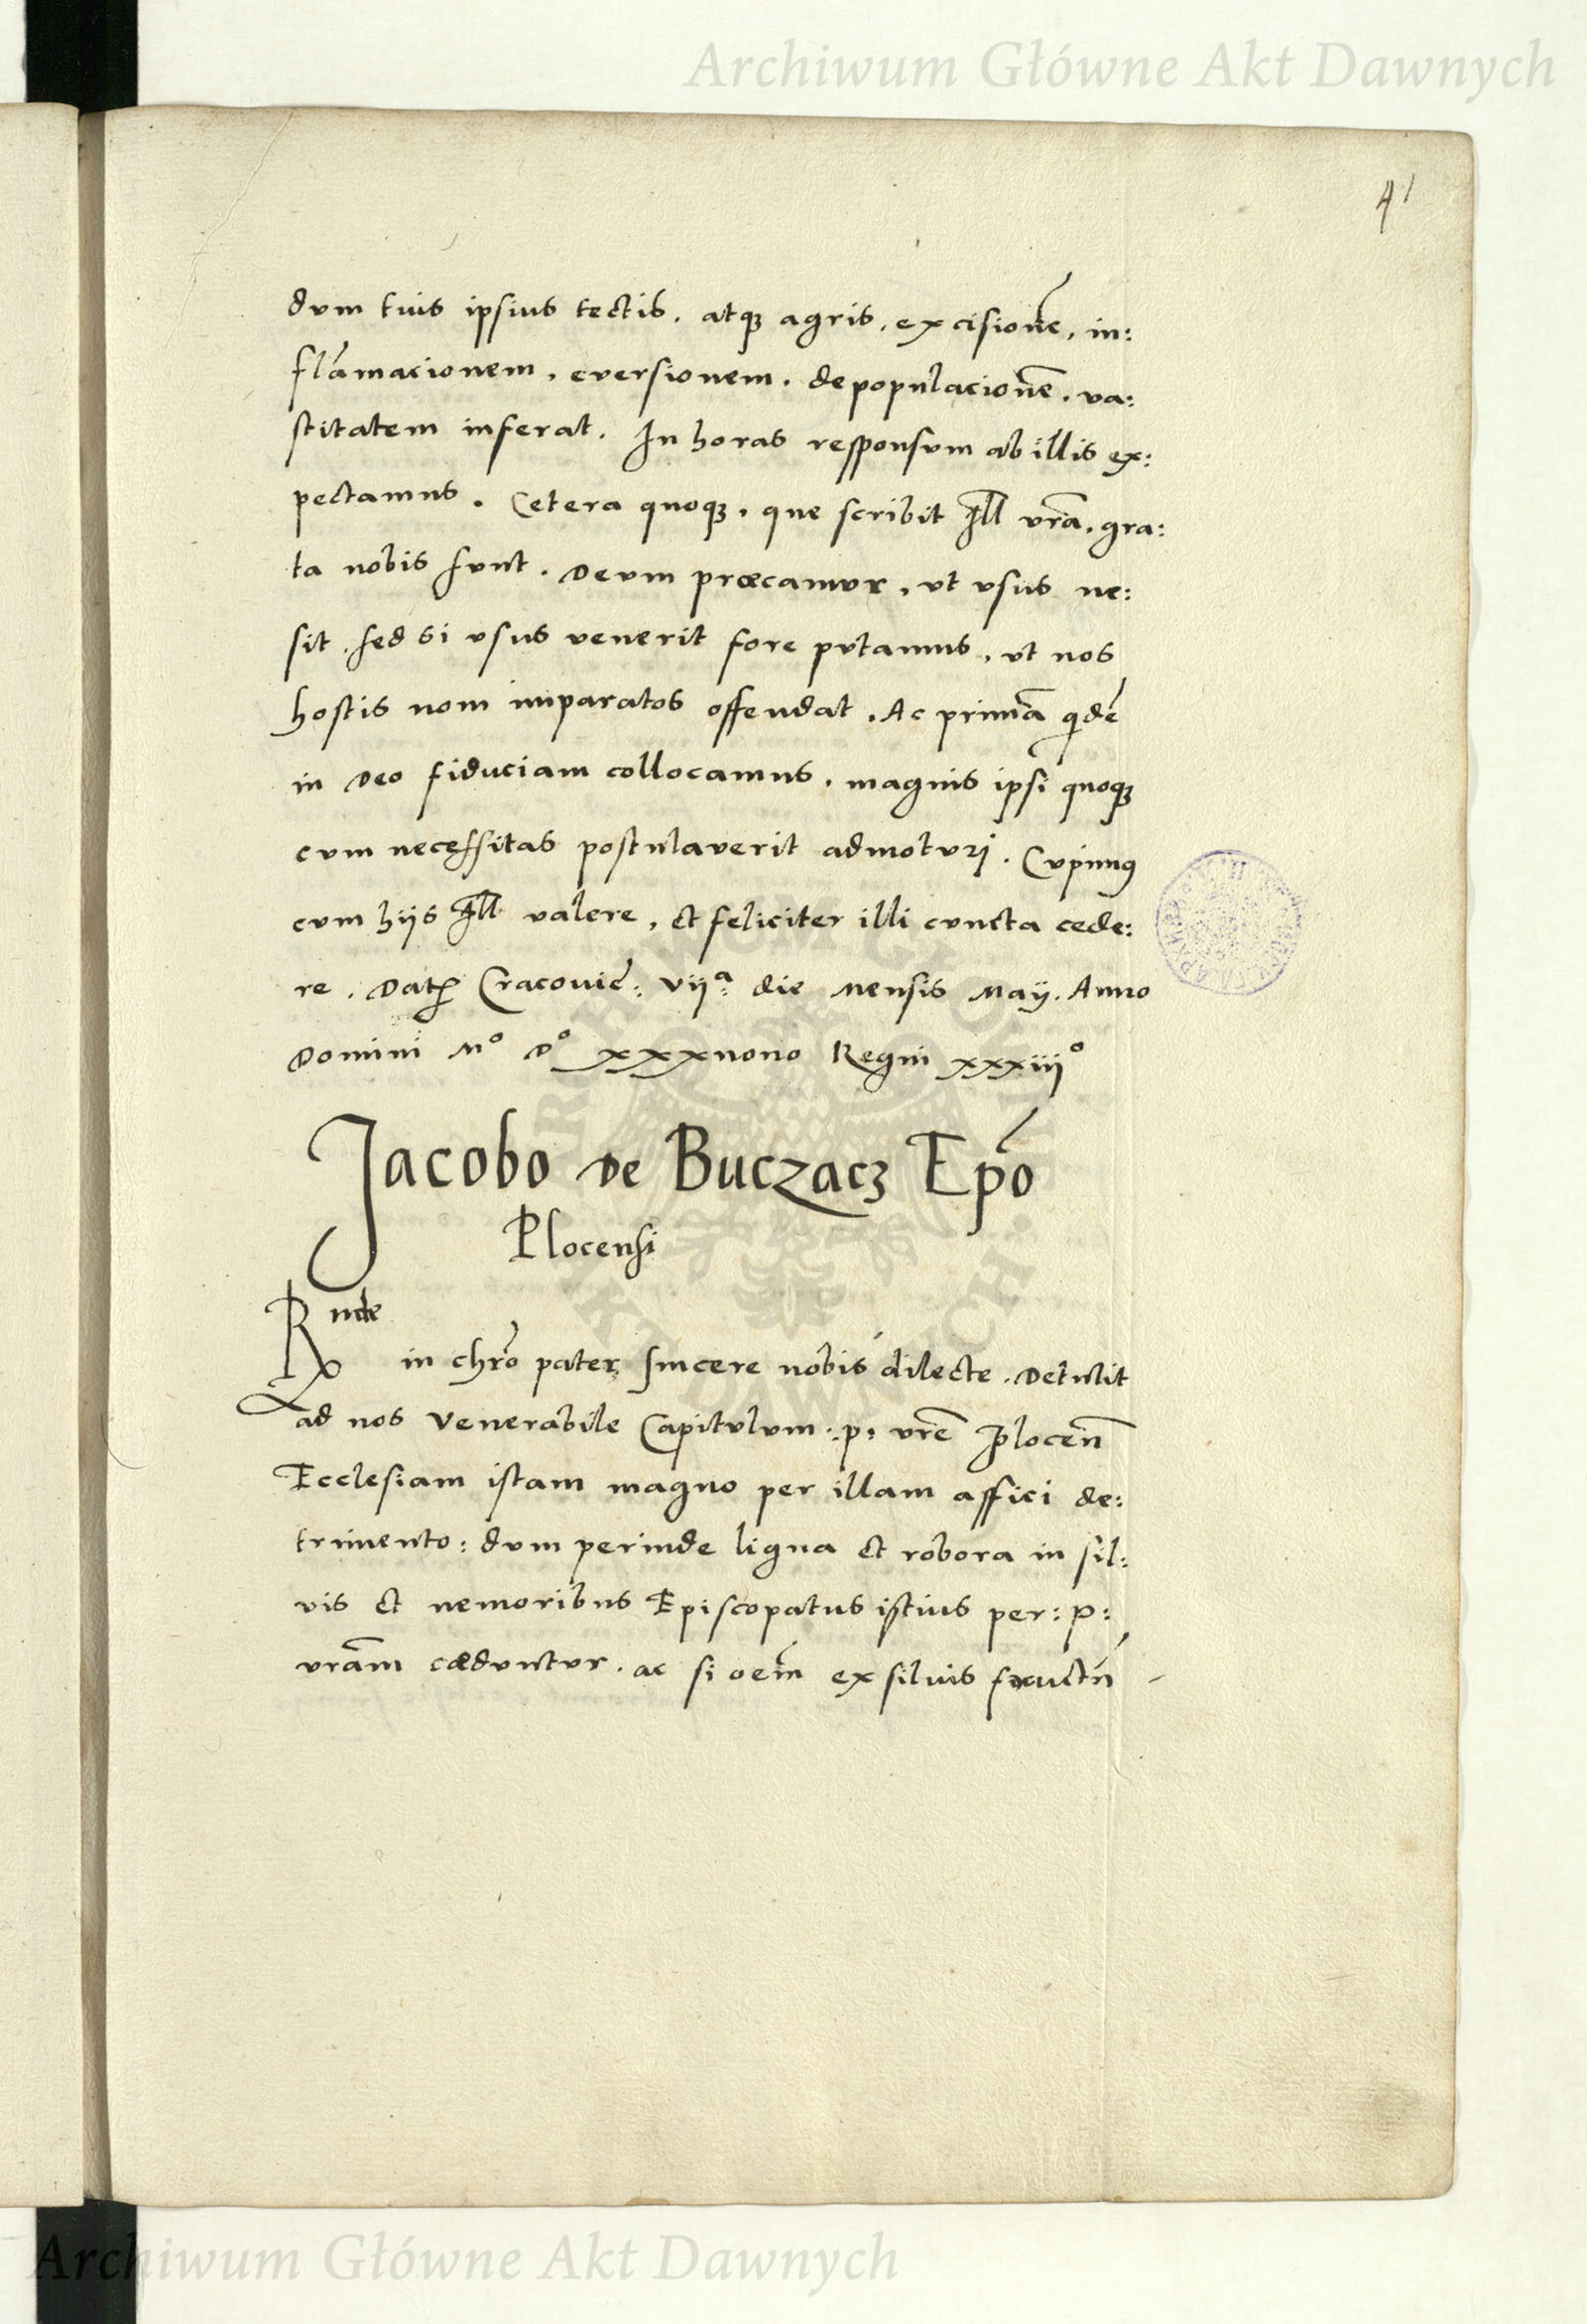 Archiwum Główne Akt Dawnych
41
dum tuis ipsius tectis. atq3 agris. excisionē. in:
flāmacionem. eversionem. depopulacionē. va:
stitatem inferat. In horas responsum ab illis ex:
pectamus. Cetera quoq3. que scribit Ill vrā. gra:
ta nobis sunt. Deum præcamur. ut usus ne:
sit. sed si usus venerit fore putamus. ut nos
hostis nom imparatos offendat. Ac primā qdē
in Deo fiduciam collocamus. magnis ipsi quoq3
cum necessitas postulaverit admoturi. Cupimꝰ
cum hijs Ill valere. et feliciter illi cuncta cede:
re. Datꝝ Cracoviē: vijᵃ: die Mensis Maij. Anno
Domini Mº Dº xxxnono Regni xxxiijº
Jacobo de Buczacz Epō
Plocensi
Rnde
in chrō pater sincere nobis dilecte. Detulit
ad nos Venerabile Capitulum :p: vrē Plocen̄
Ecclesiam istam magno per illam affici de:
trimento: dum perinde ligna et robora in sil:
vis et nemoribus Episcopatus istius per: p:
vrām cæduntur. ac si oēm ex silvis fructū
Archiwum Główne Akt Dawnych